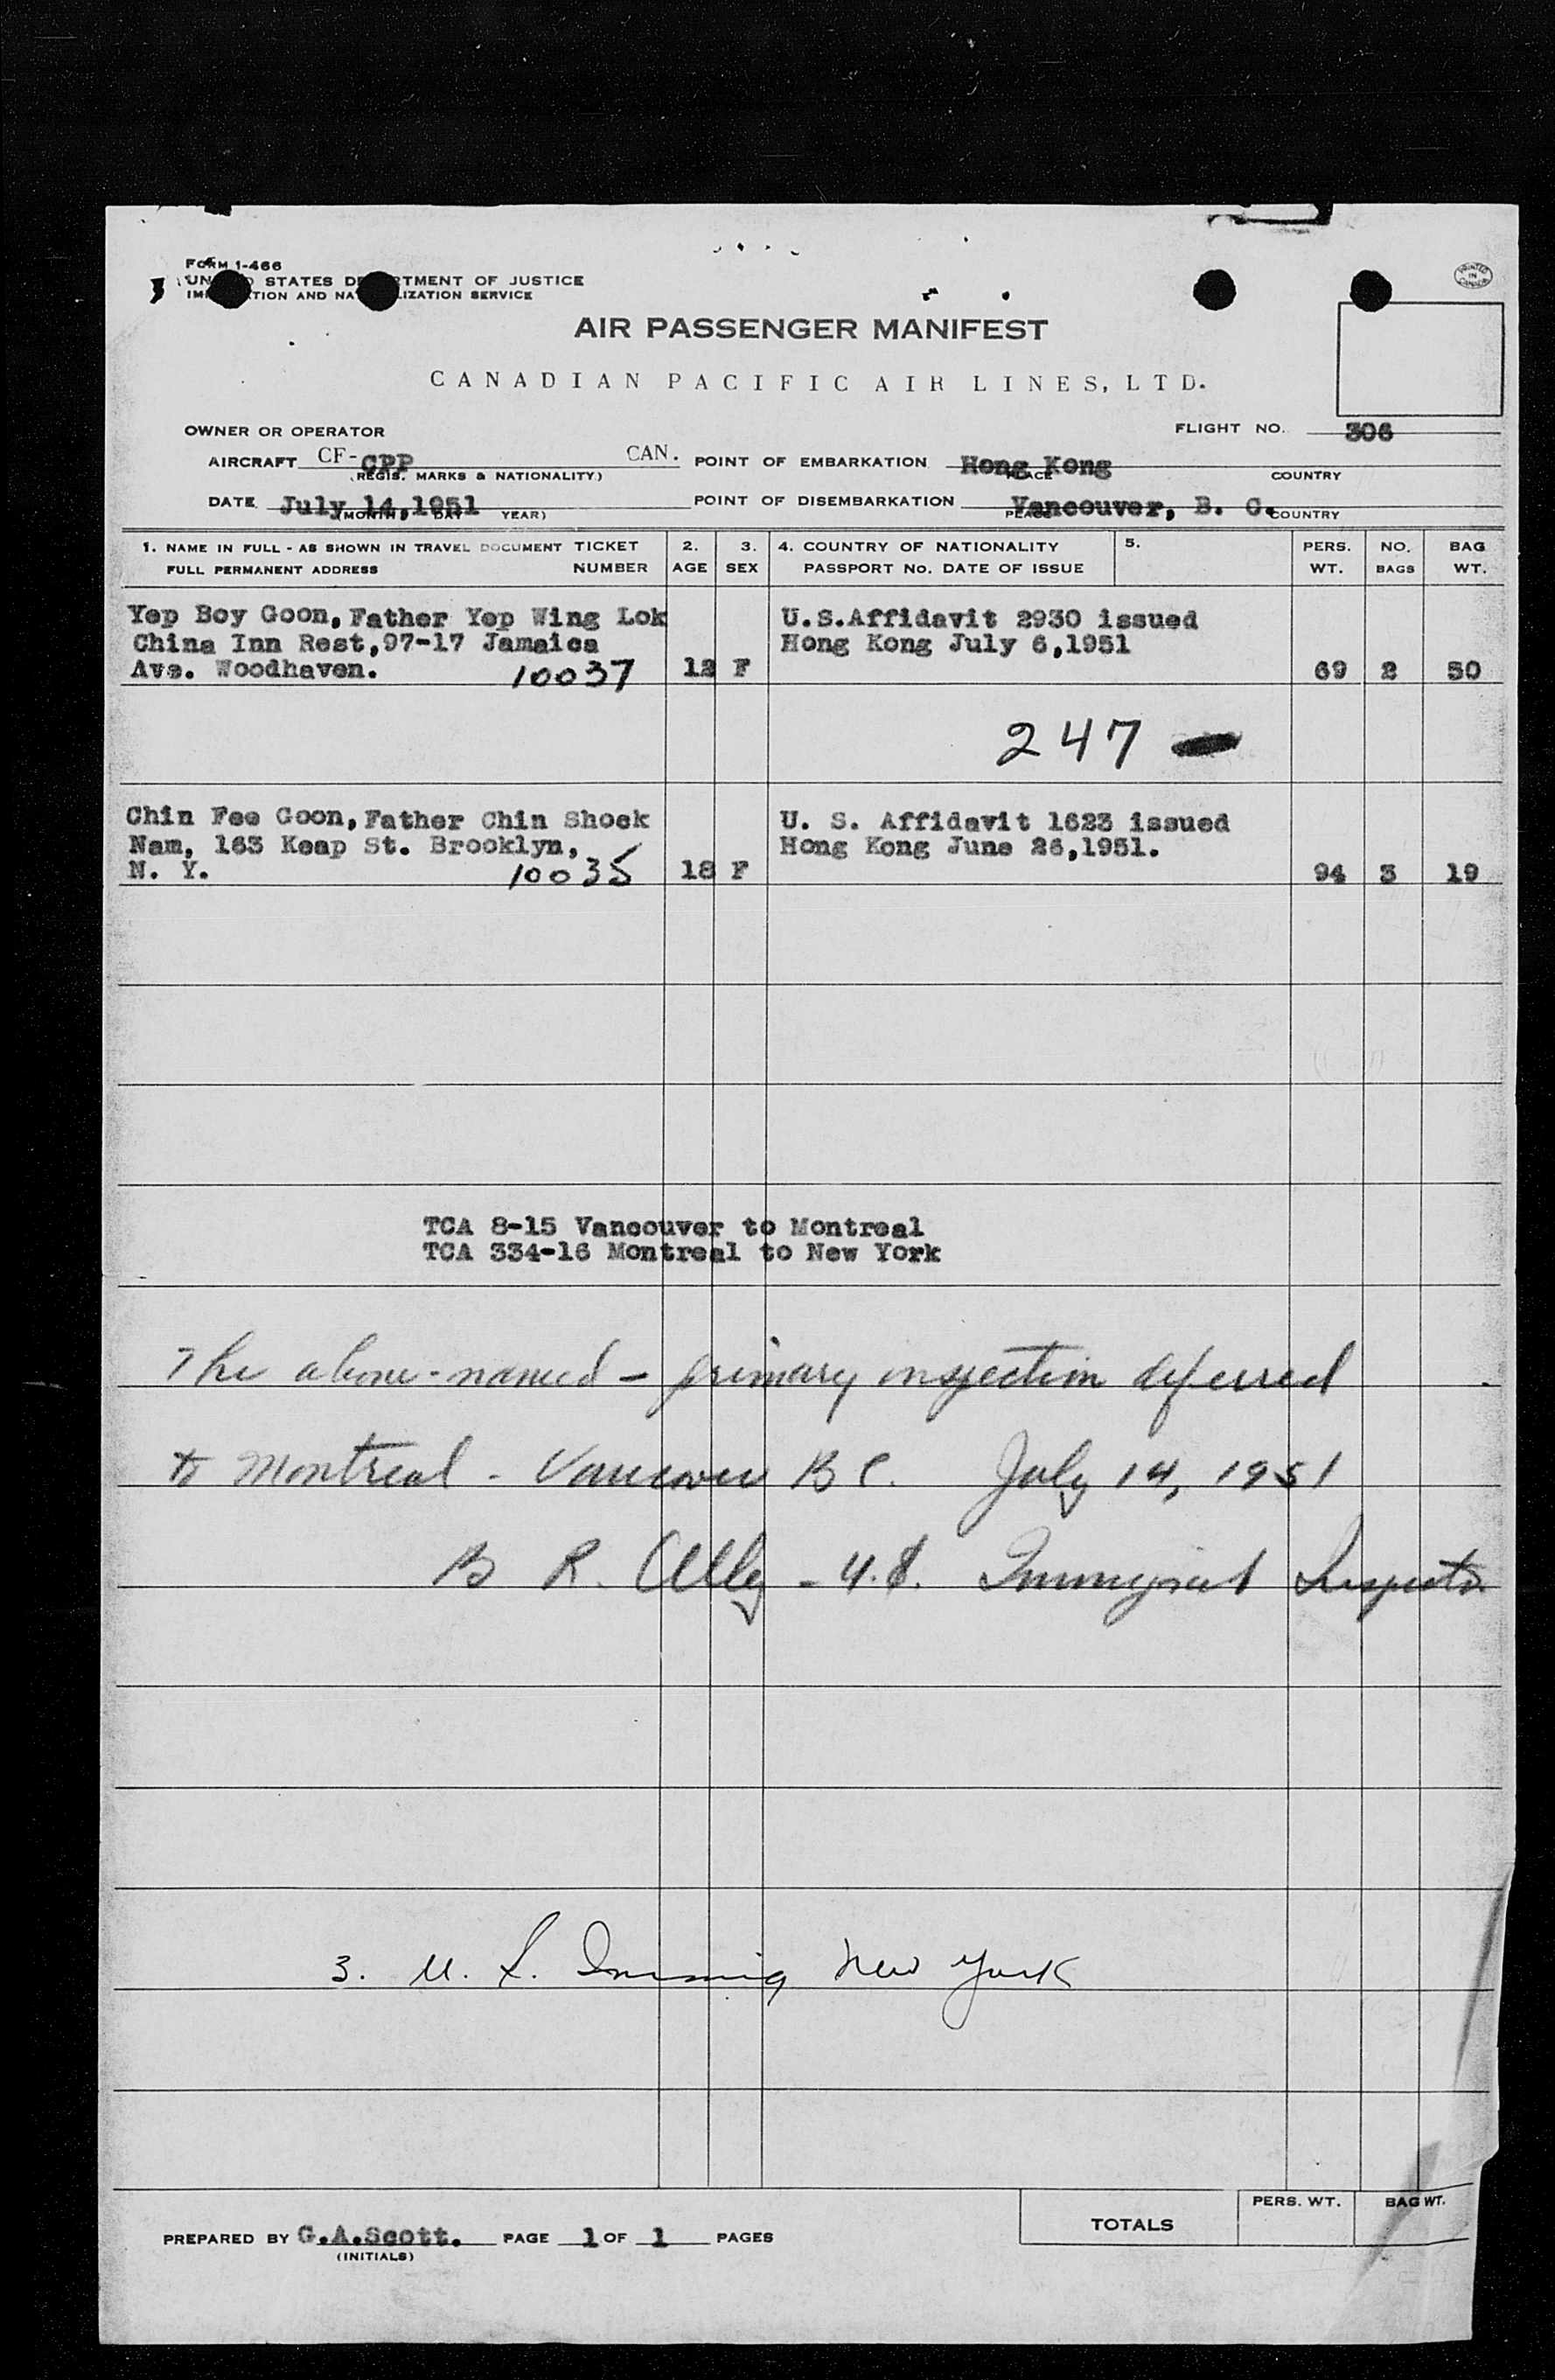 FORM 1-466
STATES DEPARTMENT OF JUSTICE
IMMIGRATION AND NATURALIZATION SERVICE
PRINTED IN CANADA
AIR PASSENGER MANIFEST
CANADIAN PACIFIC AIR LINES, LTD.
OWNER OR OPERATOR FLIGHT NO. 306
AIRCRAFT CF-CPP CAN. POINT OF EMBARKATION Hong Kong
(REGIS. MARKS & NATIONALITY) PLACE COUNTRY
DATE July 14,1951 POINT OF DISEMBARKATION Vancouver, B. C.
(MONTH DAY YEAR) PLACE COUNTRY
1. NAME IN FULL - AS SHOWN IN TRAVEL DOCUMENT TICKET 2. 3. 4. COUNTRY OF NATIONALITY 5. PERS. NO. BAG
FULL PERMANENT ADDRESS NUMBER AGE SEX PASSPORT No. DATE OF ISSUE WT. BAGS WT.
Yep Boy Goon, Father Yep Wing Lok U.S.Affidavit 2930 issued
China Inn Rest,97-17 Jamaica Hong Kong July 6,1951
Ave. Woodhaven. 10037 12 F 69 2 50
247
Chin Fee Goon, Father Chin Shock U. S. Affidavit 1623 issued
Nam, 163 Keap St. Brooklyn, Hong Kong June 26,1951.
N. Y. 10035 18 F 94 3 19
TCA 8-15 Vancouver to Montreal
TCA 334-16 Montreal to New York
The above-named - primary inspection deferred
to Montreal - Vancouver B C. July 14, 1951
B R. - U.S. Immigrant Inspector
3. U. S. Immig New York
PERS. WT. BAG WT.
TOTALS
PREPARED BY G.A.Scott. PAGE 1 OF 1 PAGES
(INITIALS)